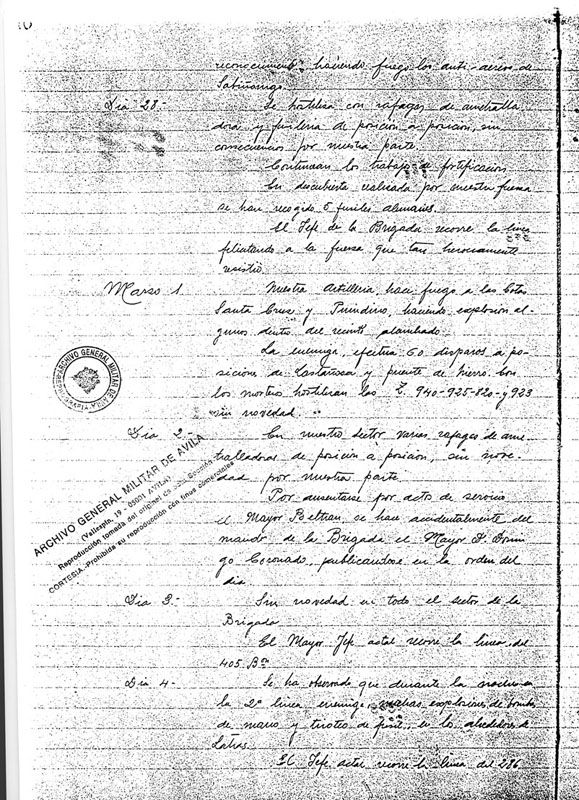 reconocimiento haciendo fuego los anti-aereos de
Sabiñanigo.
Dia 28.- Se hostiliza con rafagas de ametralla
dora y fusileria de posicion a posicion, sin
consecuencias por nuestra parte.
Continuan los trabajos de fortificacion
En descubierta realizada por nuestra fuerza
se han recogido 5 fusiles alemanes.
El Jefe de la Brigada recorre la linea
felicitando a la fuerza que tan heroicamente
resistio
Marzo 1. Nuestra Artilleria hace fuego a las Cotas
Santa Cruz y Pundino, haciendo explosion al-
gunos dentro del recinto alambrado
La enemiga, efectua 60 disparos a po-
siciones de Castañosa y puente de hierro. Con
los morteros hostilizan las Z. 940-925-820- y 923
"sin novedad."
Dia 2.- En nuestro sector varias rafagas de ame-
tralladoras de posicion a posicion, sin nove-
dad por nuestra parte.
Por ausentarse por acto de servicio
el Mayor Beltran, se hace accidentalmente del
mando de la Brigada el Mayor D. Domin
go Coronado, publicandose en la orden del
dia
Dia 3.- Sin novedad en todo el sector de la
Brigada
El Mayor Jefe actal recorre la linea del
405 Bon
Dia 4- Se ha observado que durante la noche en
la 2ª linea enemiga, explosiones de bombas
de mano y tiroteo de fusil, en los alrededores de
Latras.
El Jefe actal recorre la linea del 286
ARCHIVO GENERAL MILITAR DE AVILA
ARCHIVO GENERAL MILITAR DE AVILA
(Vallespin, 19 - 05001 AVILA)
Reproducción tomada del original de esta Sección
CORTESIA.-Prohibida su reproducción con fines comerciales